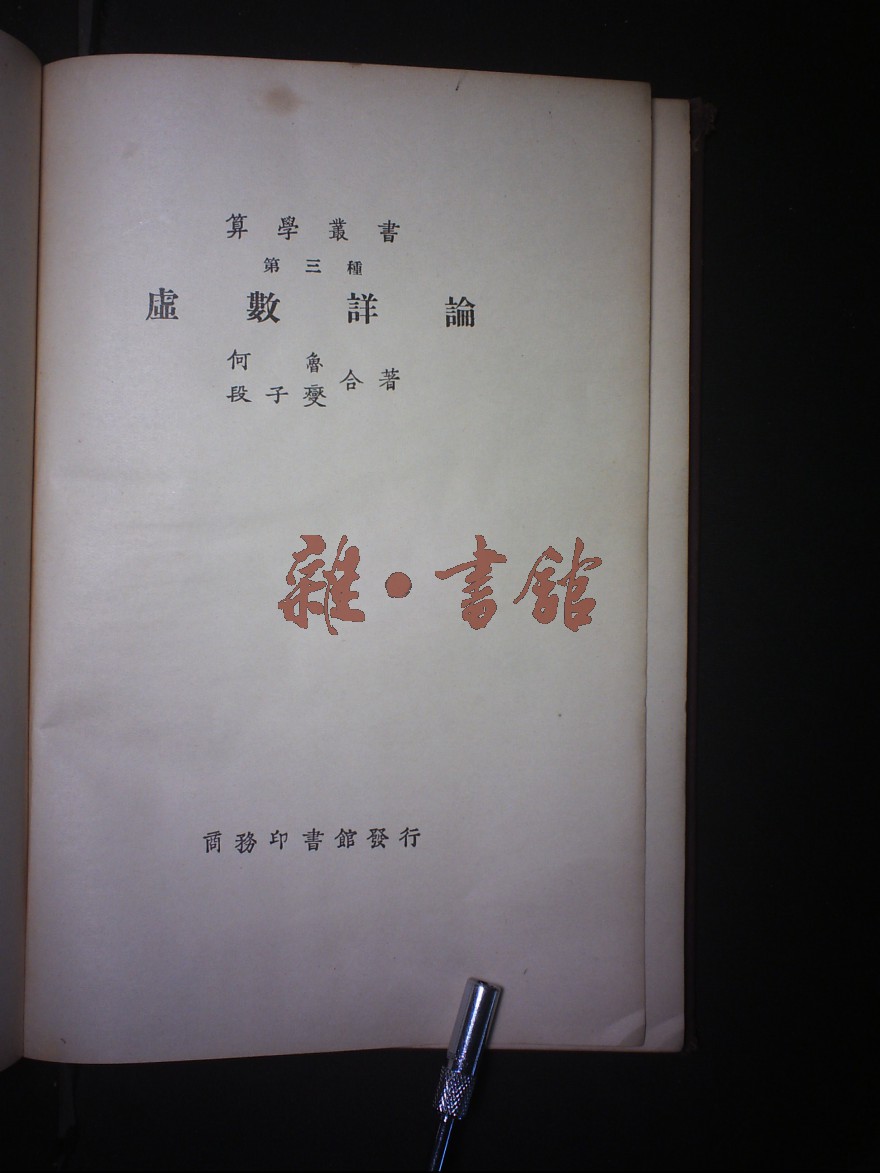 算學叢書
第三種
虛數詳論
何魯
段子燮
合著
雜·書館
商務印書館發行